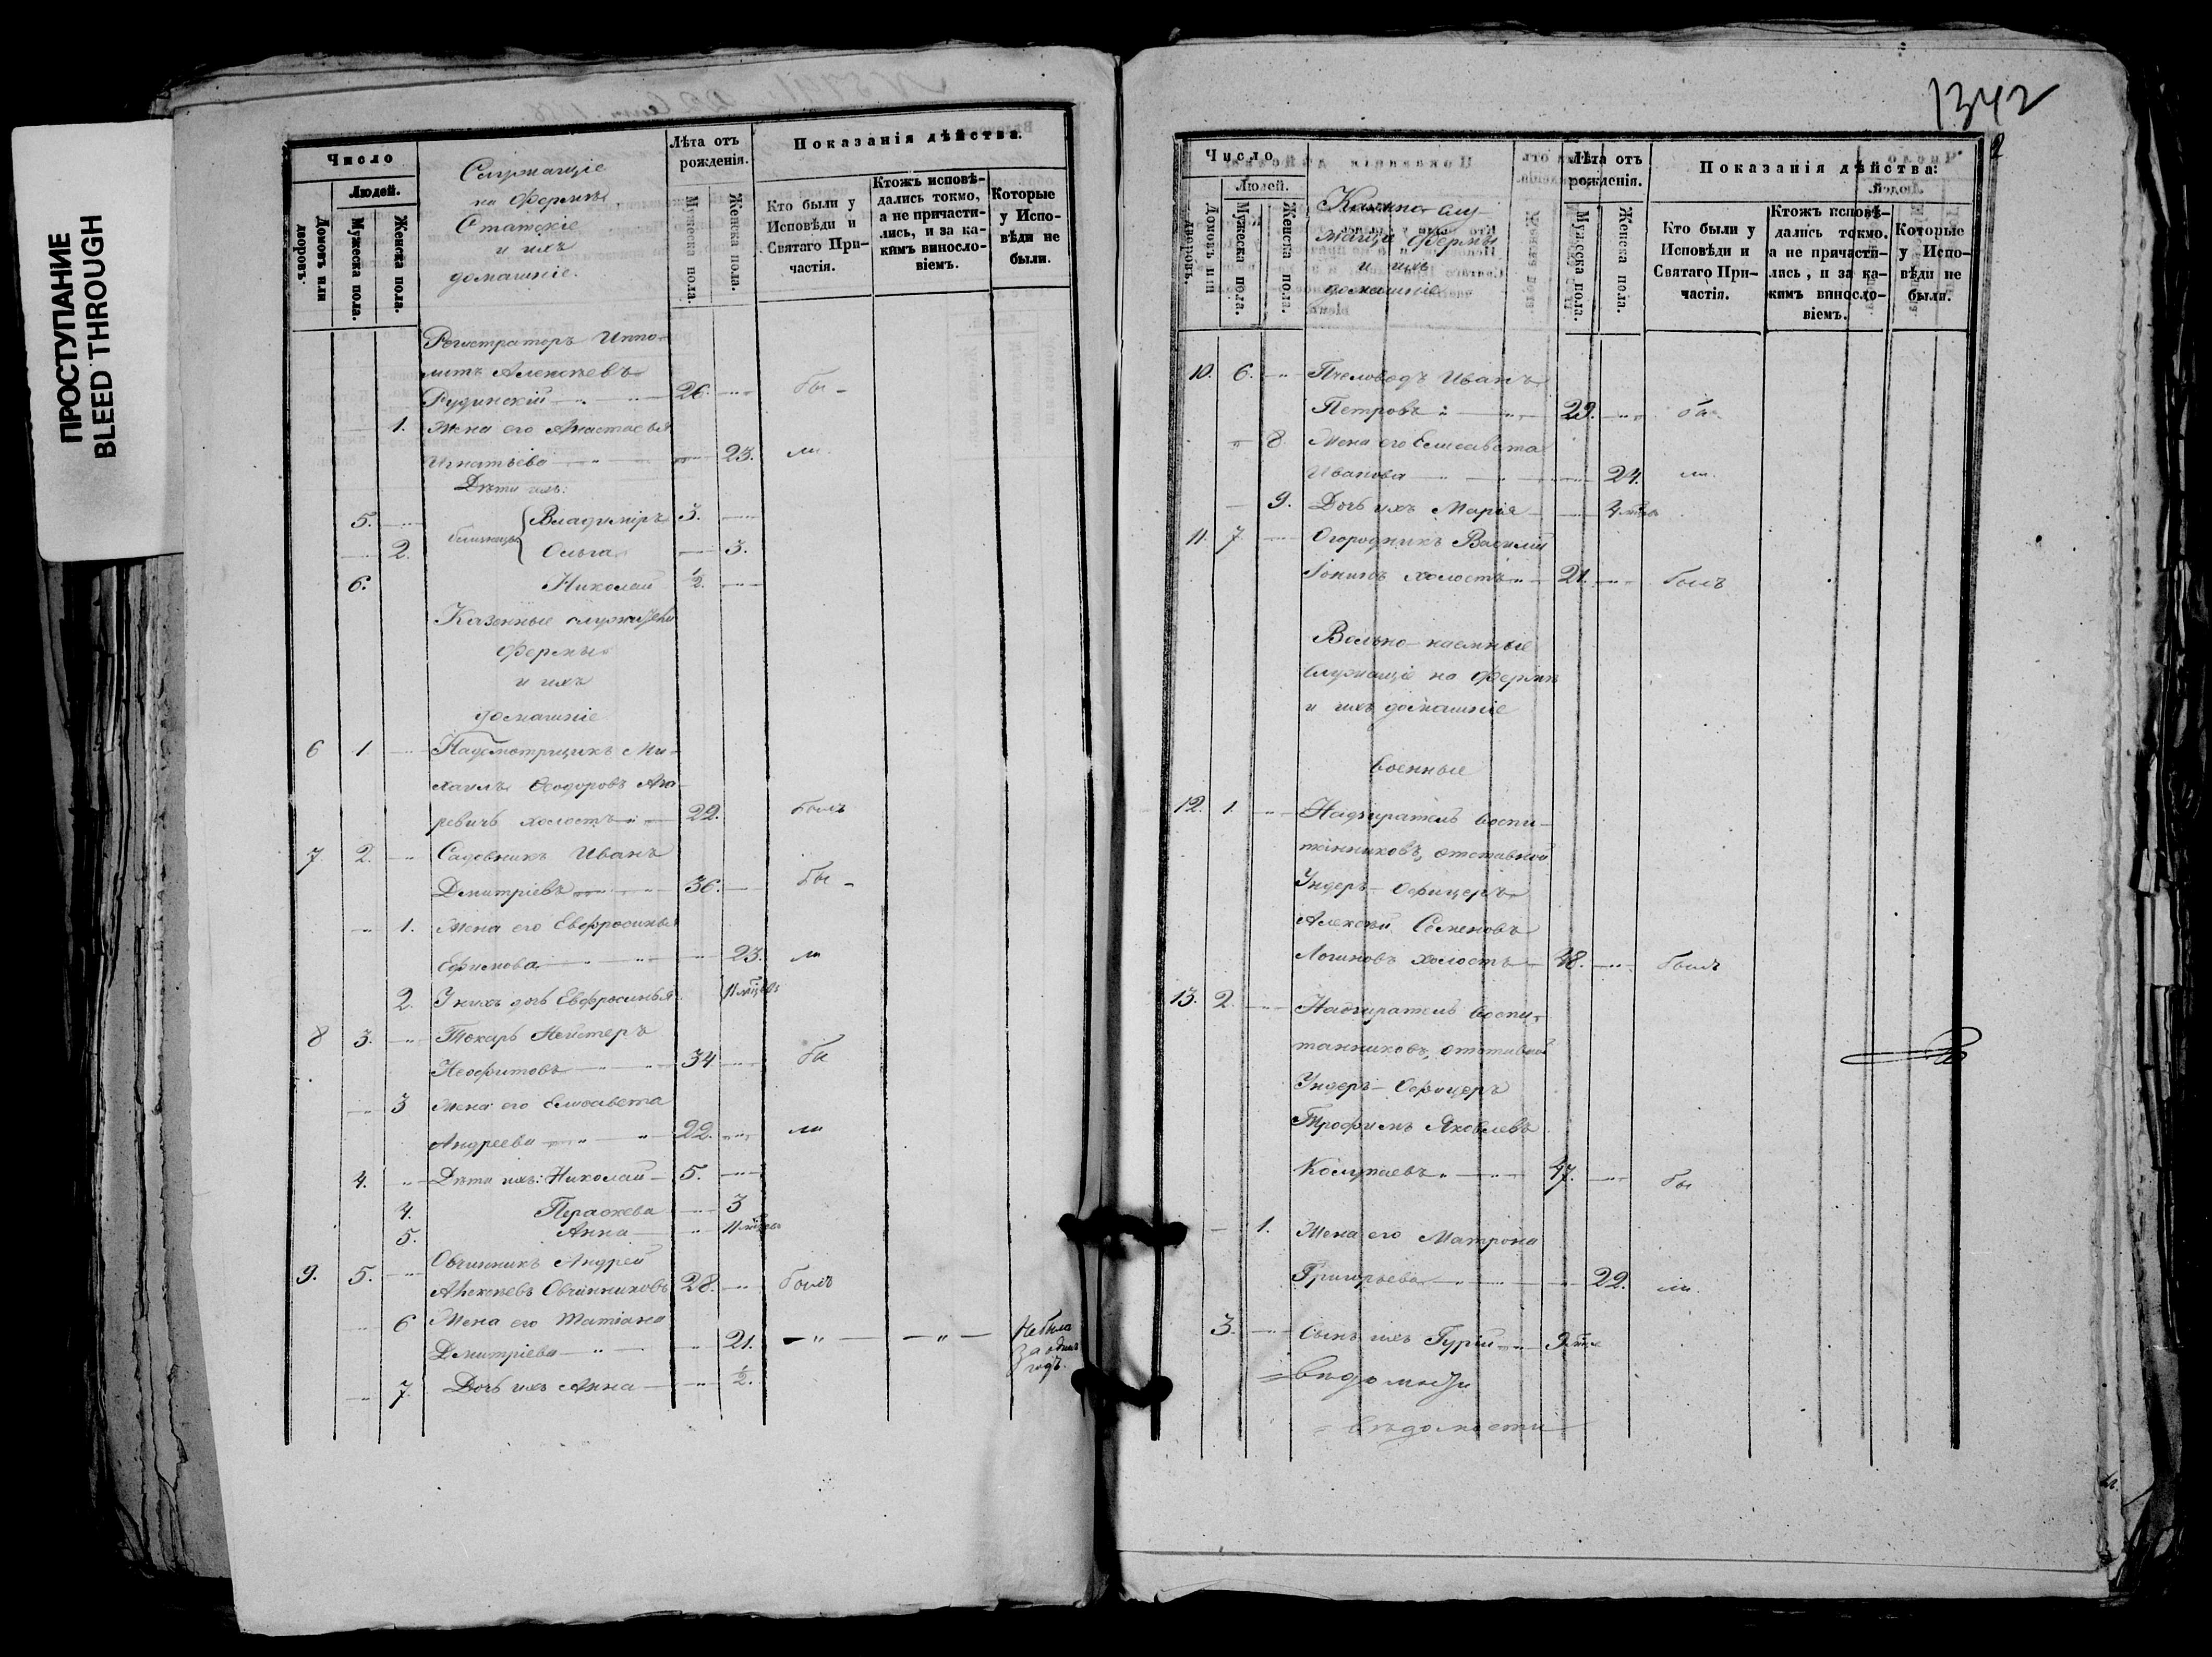 ПРОСТУПАНИЕ
BLEED THROUGH
Число
Людей.
Домовъ или дворовъ.
Мужеска пола.
Женска пола.
Служащіе
на Фермѣ
Статскіе
и ихъ
домашніе.
Лѣта отъ рожденія.
Мужеска пола.
Женска пола.
Показанія дѣйства.
Кто были у Исповѣди и Святаго Причастія.
Ктожъ исповѣ-
дались токмо,
а не причасти-
лись, и за ка-
кимъ винослo-
віемъ.
Которые
у Испо-
вѣди не
были.
Регистраторъ Иппо-
литъ Алексѣевъ
Рудинскій 26. бы-
1. Жена его Анастасья
Игнатьева 23. ли
Дѣти ихъ:
5. близнецы Владиміръ 3.
2. Ольга 3.
6. Николай 1/2.
Казенные служители
Фермы
и ихъ
домашніе
6 1 Надсмотрщикъ Ми-
хаилъ Ѳеодоровъ
холостъ 22. былъ
7 2. Садовникъ Иванъ
Дмитріевъ 36. бы-
1. Жена его Евфросинья
Ефимова 23. ли
2. У нихъ дочь Евфросинья 11 мѣсцовъ
8 3. Токарь
Неофитовъ 34 бы
3 Жена его Елисавета
Андреева 22. ли
4. Дѣти ихъ: Николай 5.
4. Параскева 3
5. Анна 11 мѣсцовъ
9. 5. Овчинникъ Андрей
Алексѣевъ Овчинниковъ 28. былъ
6 Жена его Татіана
Дмитріева 21. Не была
за однимъ
годъ.
7. Дочь ихъ Анна 1/2.
1342
2
Число
Людей.
Домовъ или дворовъ.
Мужеска пола.
Женска пола.
Казенно-слу-
жащіе Фермы
и ихъ
домашніе
Лѣта отъ рожденія.
Мужеска пола.
Женска пола.
Показанія дѣйства:
Кто были у Исповѣди и Святаго Причастія.
Ктожъ исповѣ-
дались токмо,
а не причасти-
лись, и за ка-
кимъ винослo-
віемъ.
Которые
у Испо-
вѣди не
были.
10. 6. Пчеловодъ Иванъ
Петровъ 29. бы
8. Жена его Елисавета
Иванова 24. ли.
9. Дочь ихъ Марія
11. 7 Огородникъ Василій
Іонинъ холостъ 21. былъ
Вольно-наемные
служащіе на Фермѣ
и ихъ домашніе
военные
12. 1. Надзиратель воспи-
танниковъ, отставной
Ундеръ-Офицеръ
Алексѣй Семеновъ
Логиновъ холостъ 48. былъ
13. 2. Надзиратель воспи-
танниковъ, отставной
Ундеръ-Офицеръ
Трофимъ Яковлевъ
Колупаевъ 47. бы
1. Жена его Матрона
Григорьева 22. ли.
3. Сынъ ихъ Гурій
вѣдомости